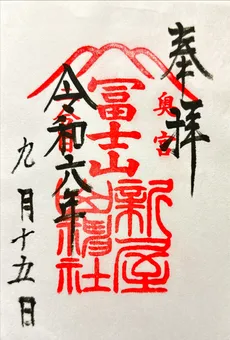 奉拝
奥宮
冨士山
合目
新屋
山神社
令和六年
九月十五日